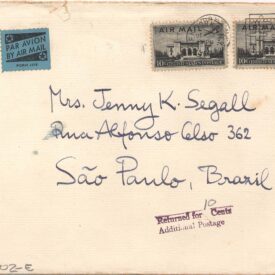 PAR AVION
BY AIR MAIL
AIR MAIL
10¢
AIR MAIL
10¢
Mrs. Jenny K. Segall
Rua Alfonso Celso 362
São Paulo, Brazil
10
Returned for Cents
Additional Postage